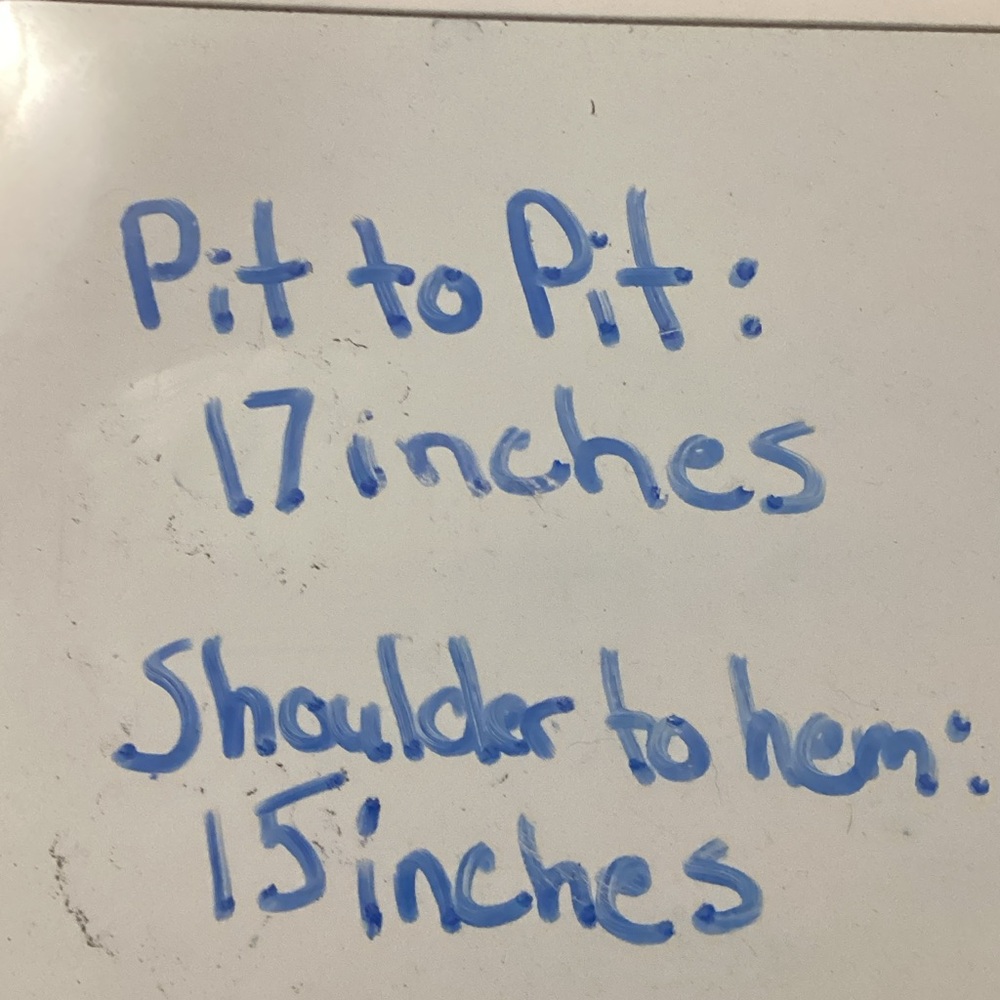 Pit to Pit:
17 inches
Shoulder to hem:
15 inches